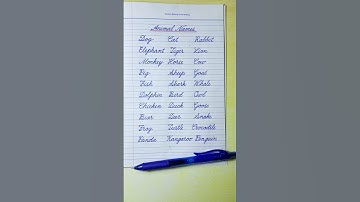 Animal Names
Dog Cat Rabbit
Elephant Tiger Lion
Monkey Horse Cow
Pig Sheep Goat
Fish Shark Whale
Dolphin Bird Owl
Chicken Duck Goose
Bear Deer Snake
Frog Turtle Crocodile
Panda Kangaroo Penguin